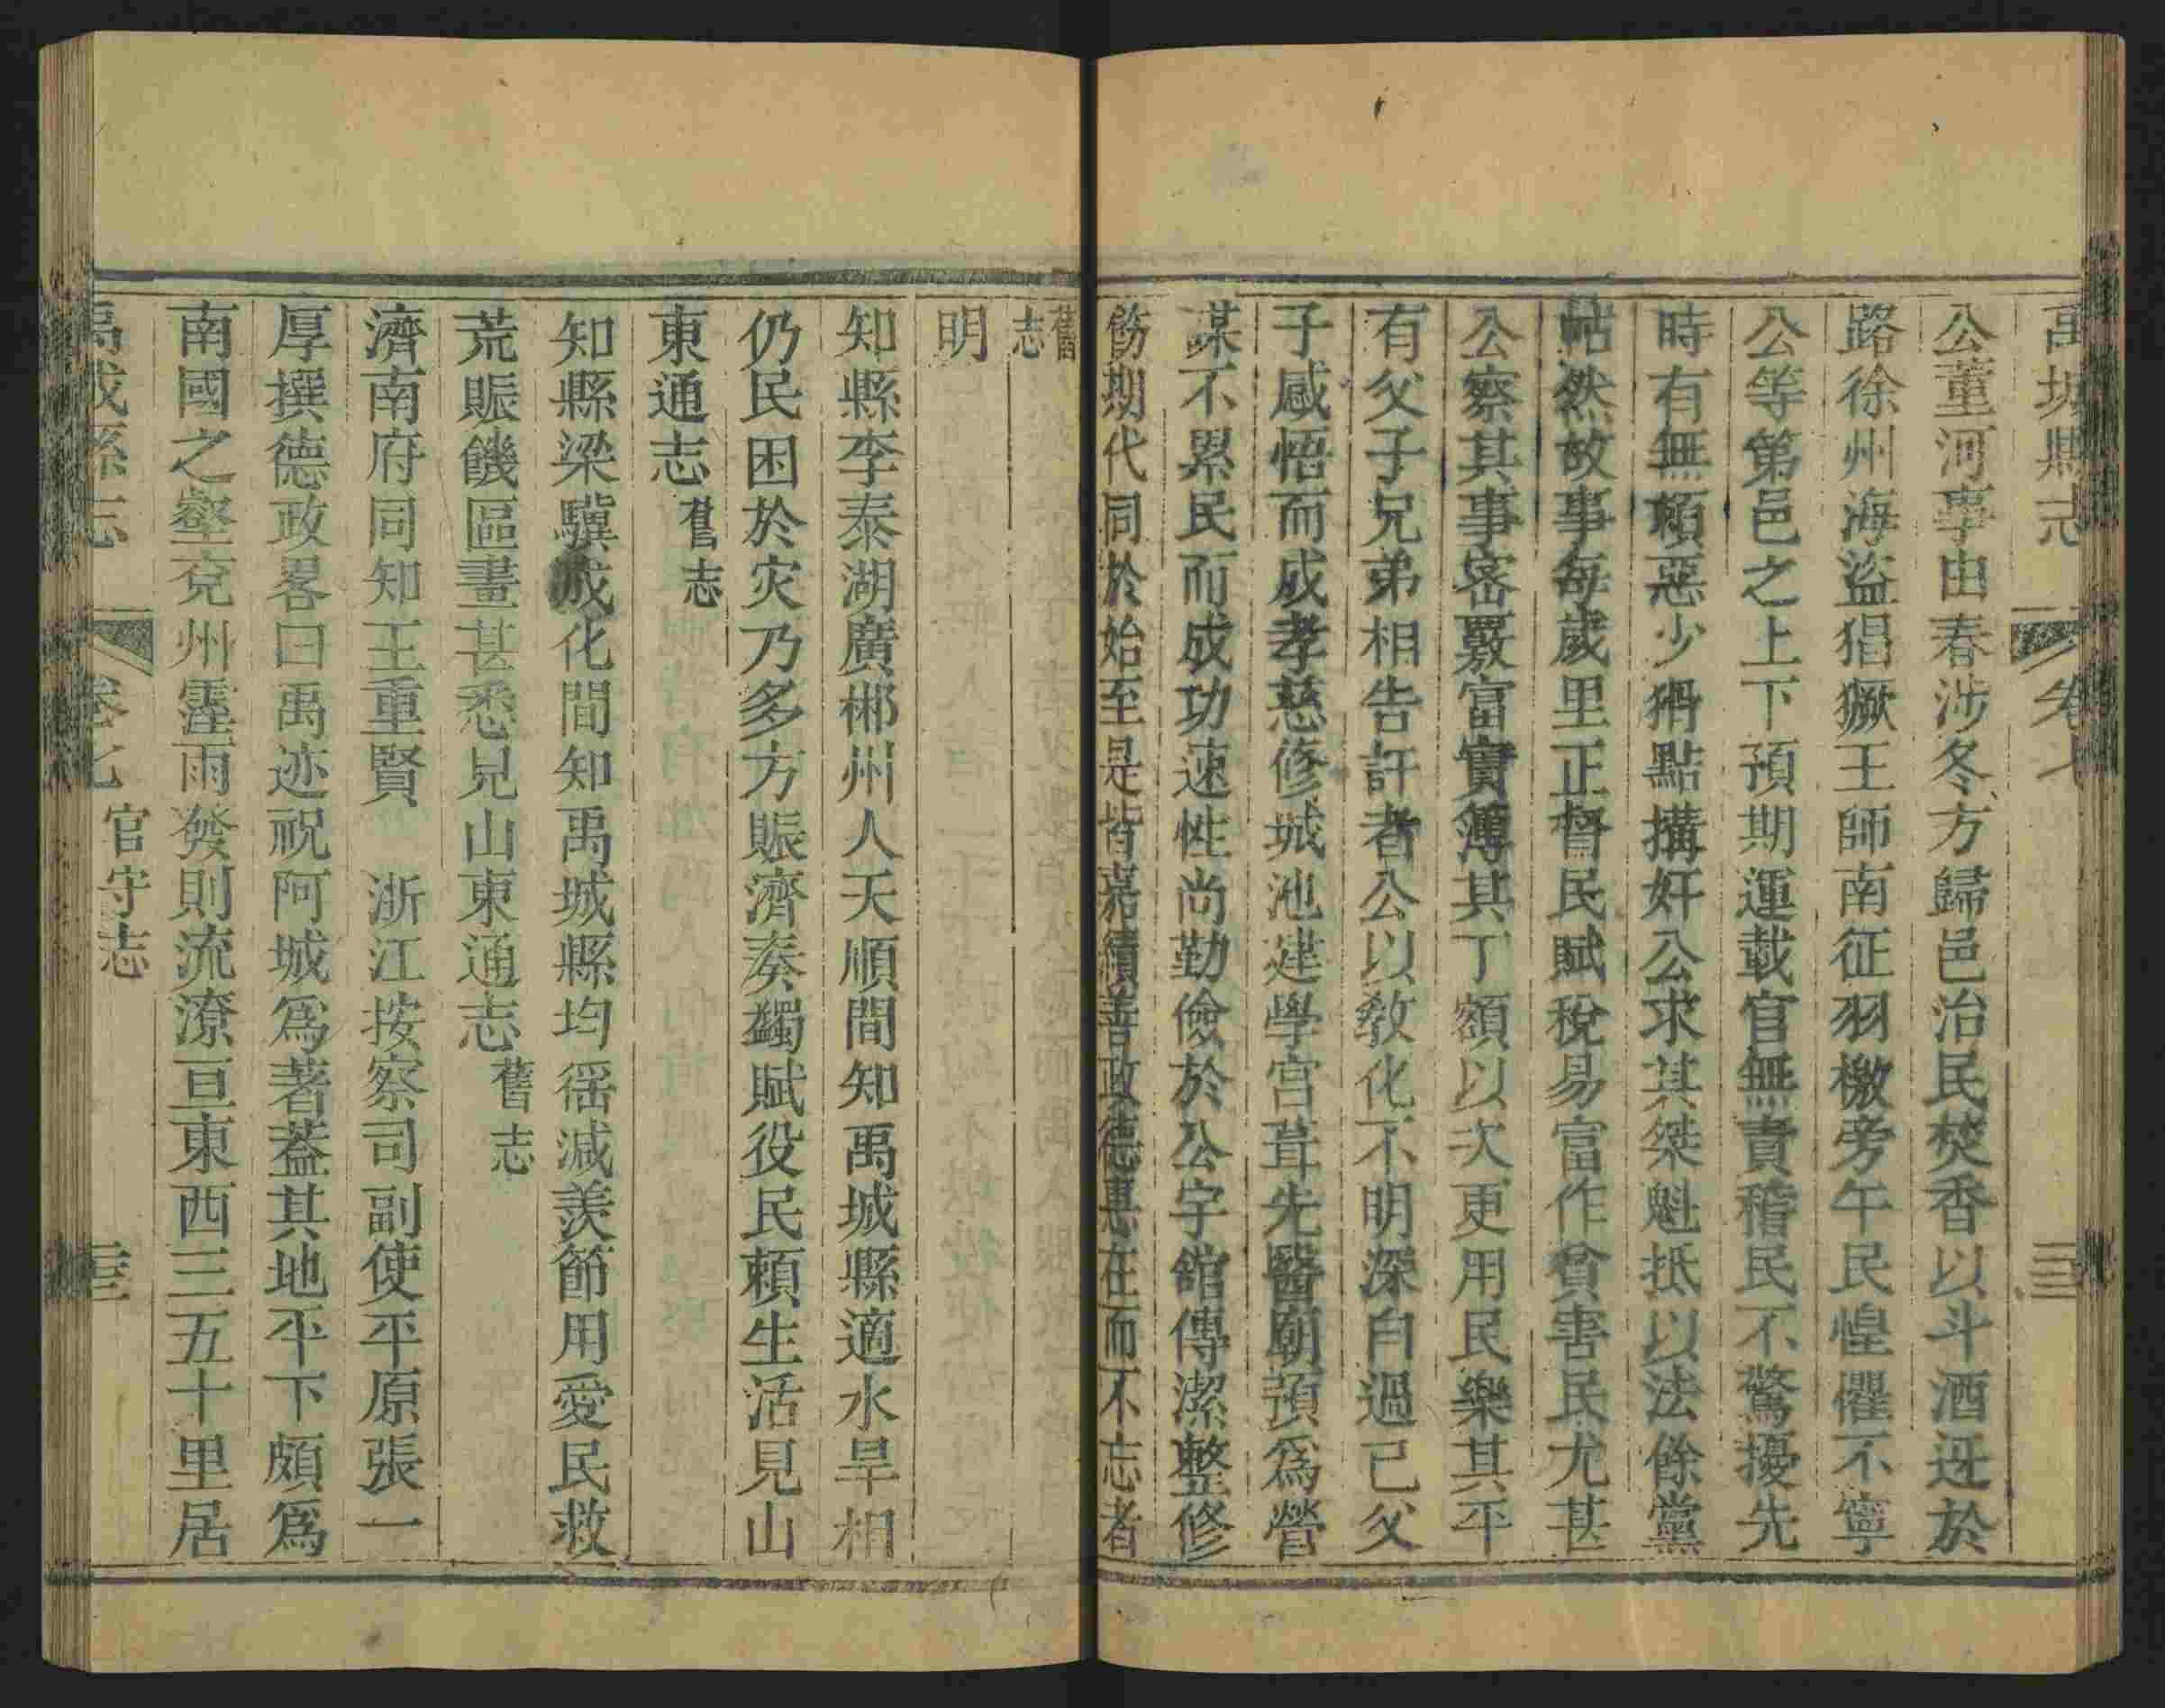 禹城縣志 卷七
公董河事由春涉冬方歸邑治民焚香以斗酒迓於
路徐州海盜猖獗王師南征羽檄旁午民惶懼不寧
公等第邑之上下預期運載官無責稽民不驚擾先
時有無賴惡少猾點搆奸公求其桀魁抵以法餘黨
帖然故事每歲里正督民賦稅易富作貧害民尤甚
公察其事密覈富實簿其丁額以次更用民樂其平
有父子兄弟相告訐者公以敎化不明深自過已父
子感悟而成孝慈修城池建學宮葺先醫廟預爲營
謀不累民而成功速性尚勤儉於公宇舘傳潔整修
飭期代同於始至是皆嘉績善政德惠在而不忘者
舊志
明
知縣李泰湖廣郴州人天順間知禹城縣適水旱相
仍民困於灾乃多方賑濟奏蠲賦役民賴生活見山
東通志舊志
知縣梁驥成化間知禹城縣均徭減羨節用愛民救
荒賑饑區畫甚悉見山東通志舊志
濟南府同知王重賢 浙江按察司副使平原張一
厚撰德政畧曰禹迹祝阿城爲著蓋其地平下頗爲
南國之壑兗州霪雨發則流潦亘東西三五十里居
禹城縣志 卷七 官守志